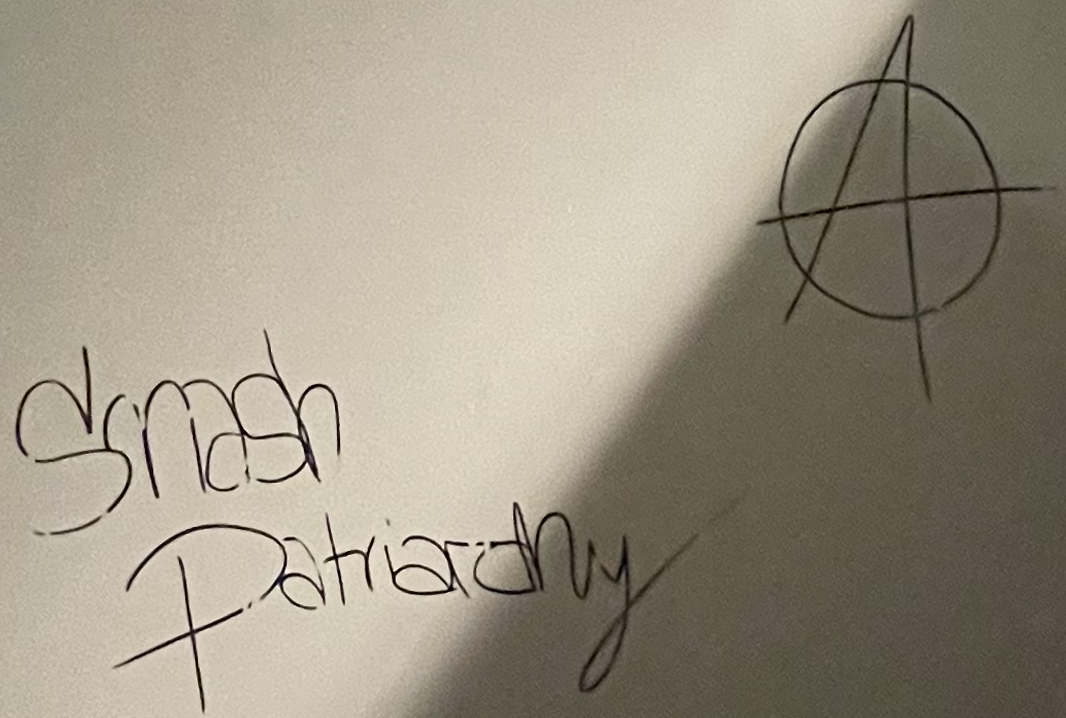 Ⓐ
Smash
Patriarchy